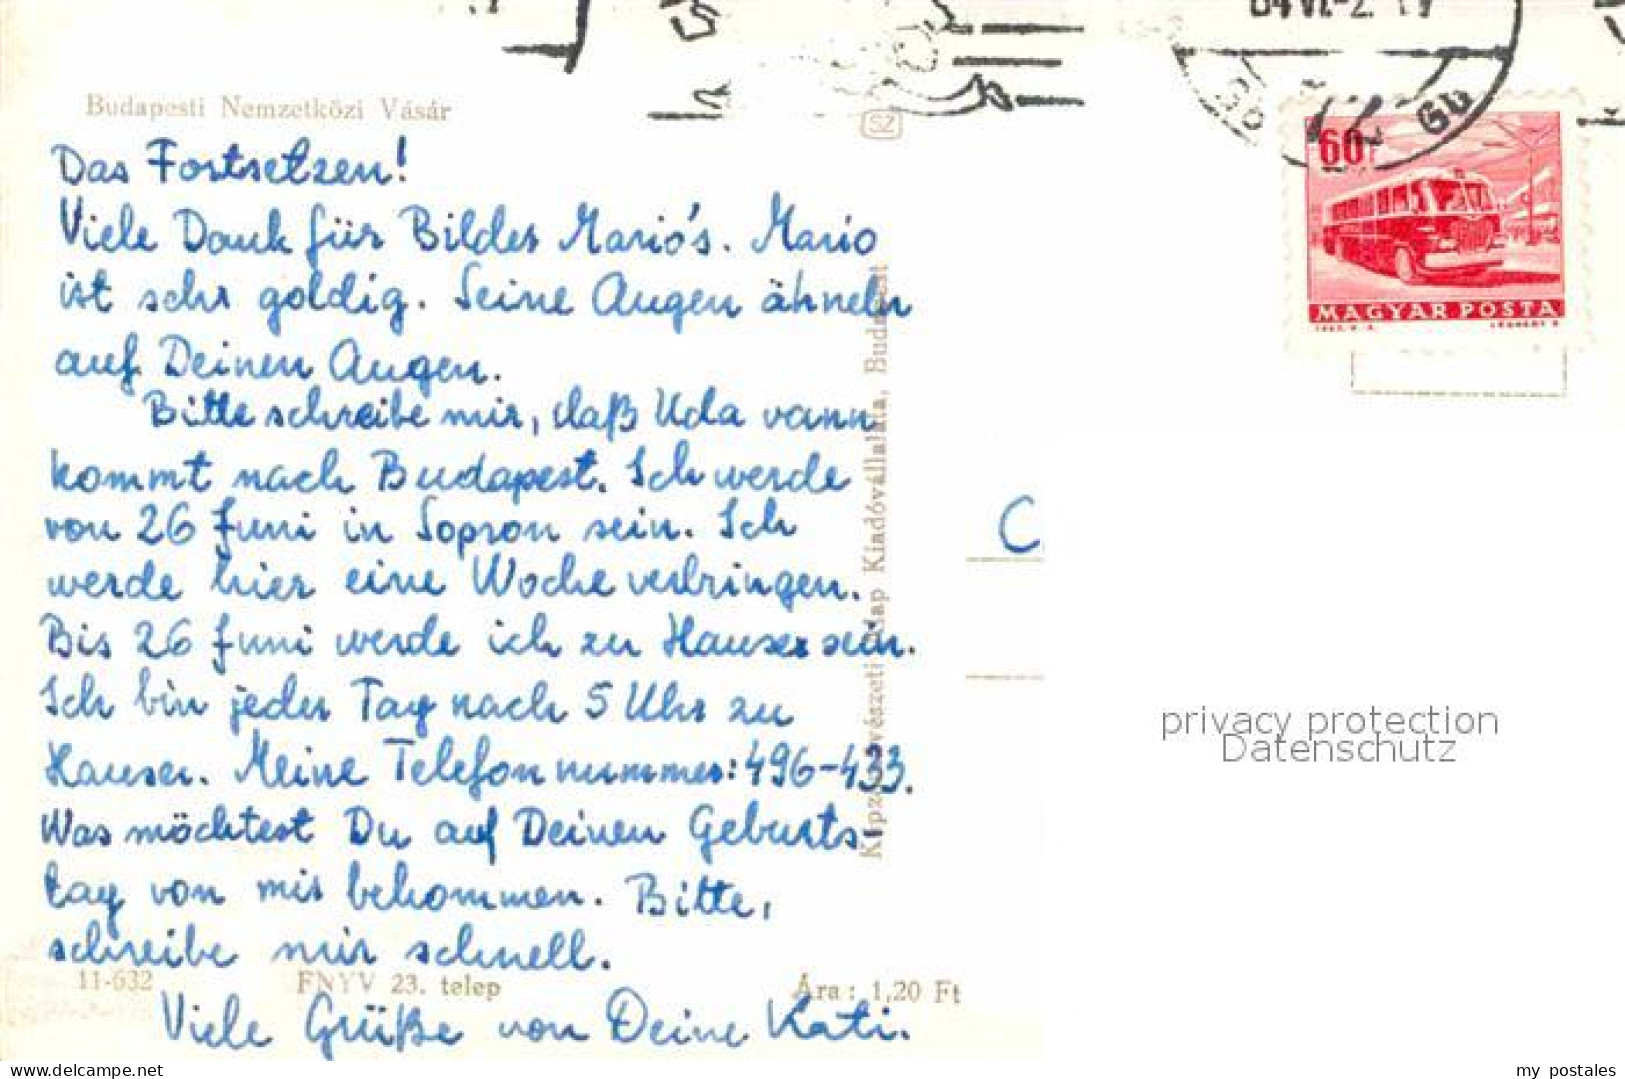 64 VI.-2. 19
Budapesti Nemzetközi Vásár
SZ
60f
MAGYAR POSTA
Das Fortsetzen!
Viele Dank für Bilder Marió's. Mario
ist sehr goldig. Seine Augen ähneln
auf Deinen Augen.
Bitte schreibe mir, daß Uda vann
kommt nach Budapest. Ich werde
von 26 Juni in Sopron sein. Ich
werde hier eine Woche verbringen.
Bis 26 Juni werde ich zu Hause sein.
Ich bin jeder Tag nach 5 Uhr zu
Hauser. Meine Telefonnummer: 496-433.
Was möchtest Du auf Deinen Geburts-
tag von mir bekommen. Bitte,
schreibe mir schnell.
Viele Grüße von Deine Kati.
Képzőművészeti Alap Kiadóvállalata, Budapest
C
11-632 FNYV 23. telep Ára: 1,20 Ft
privacy protection
Datenschutz
www.delcampe.net
my_postales